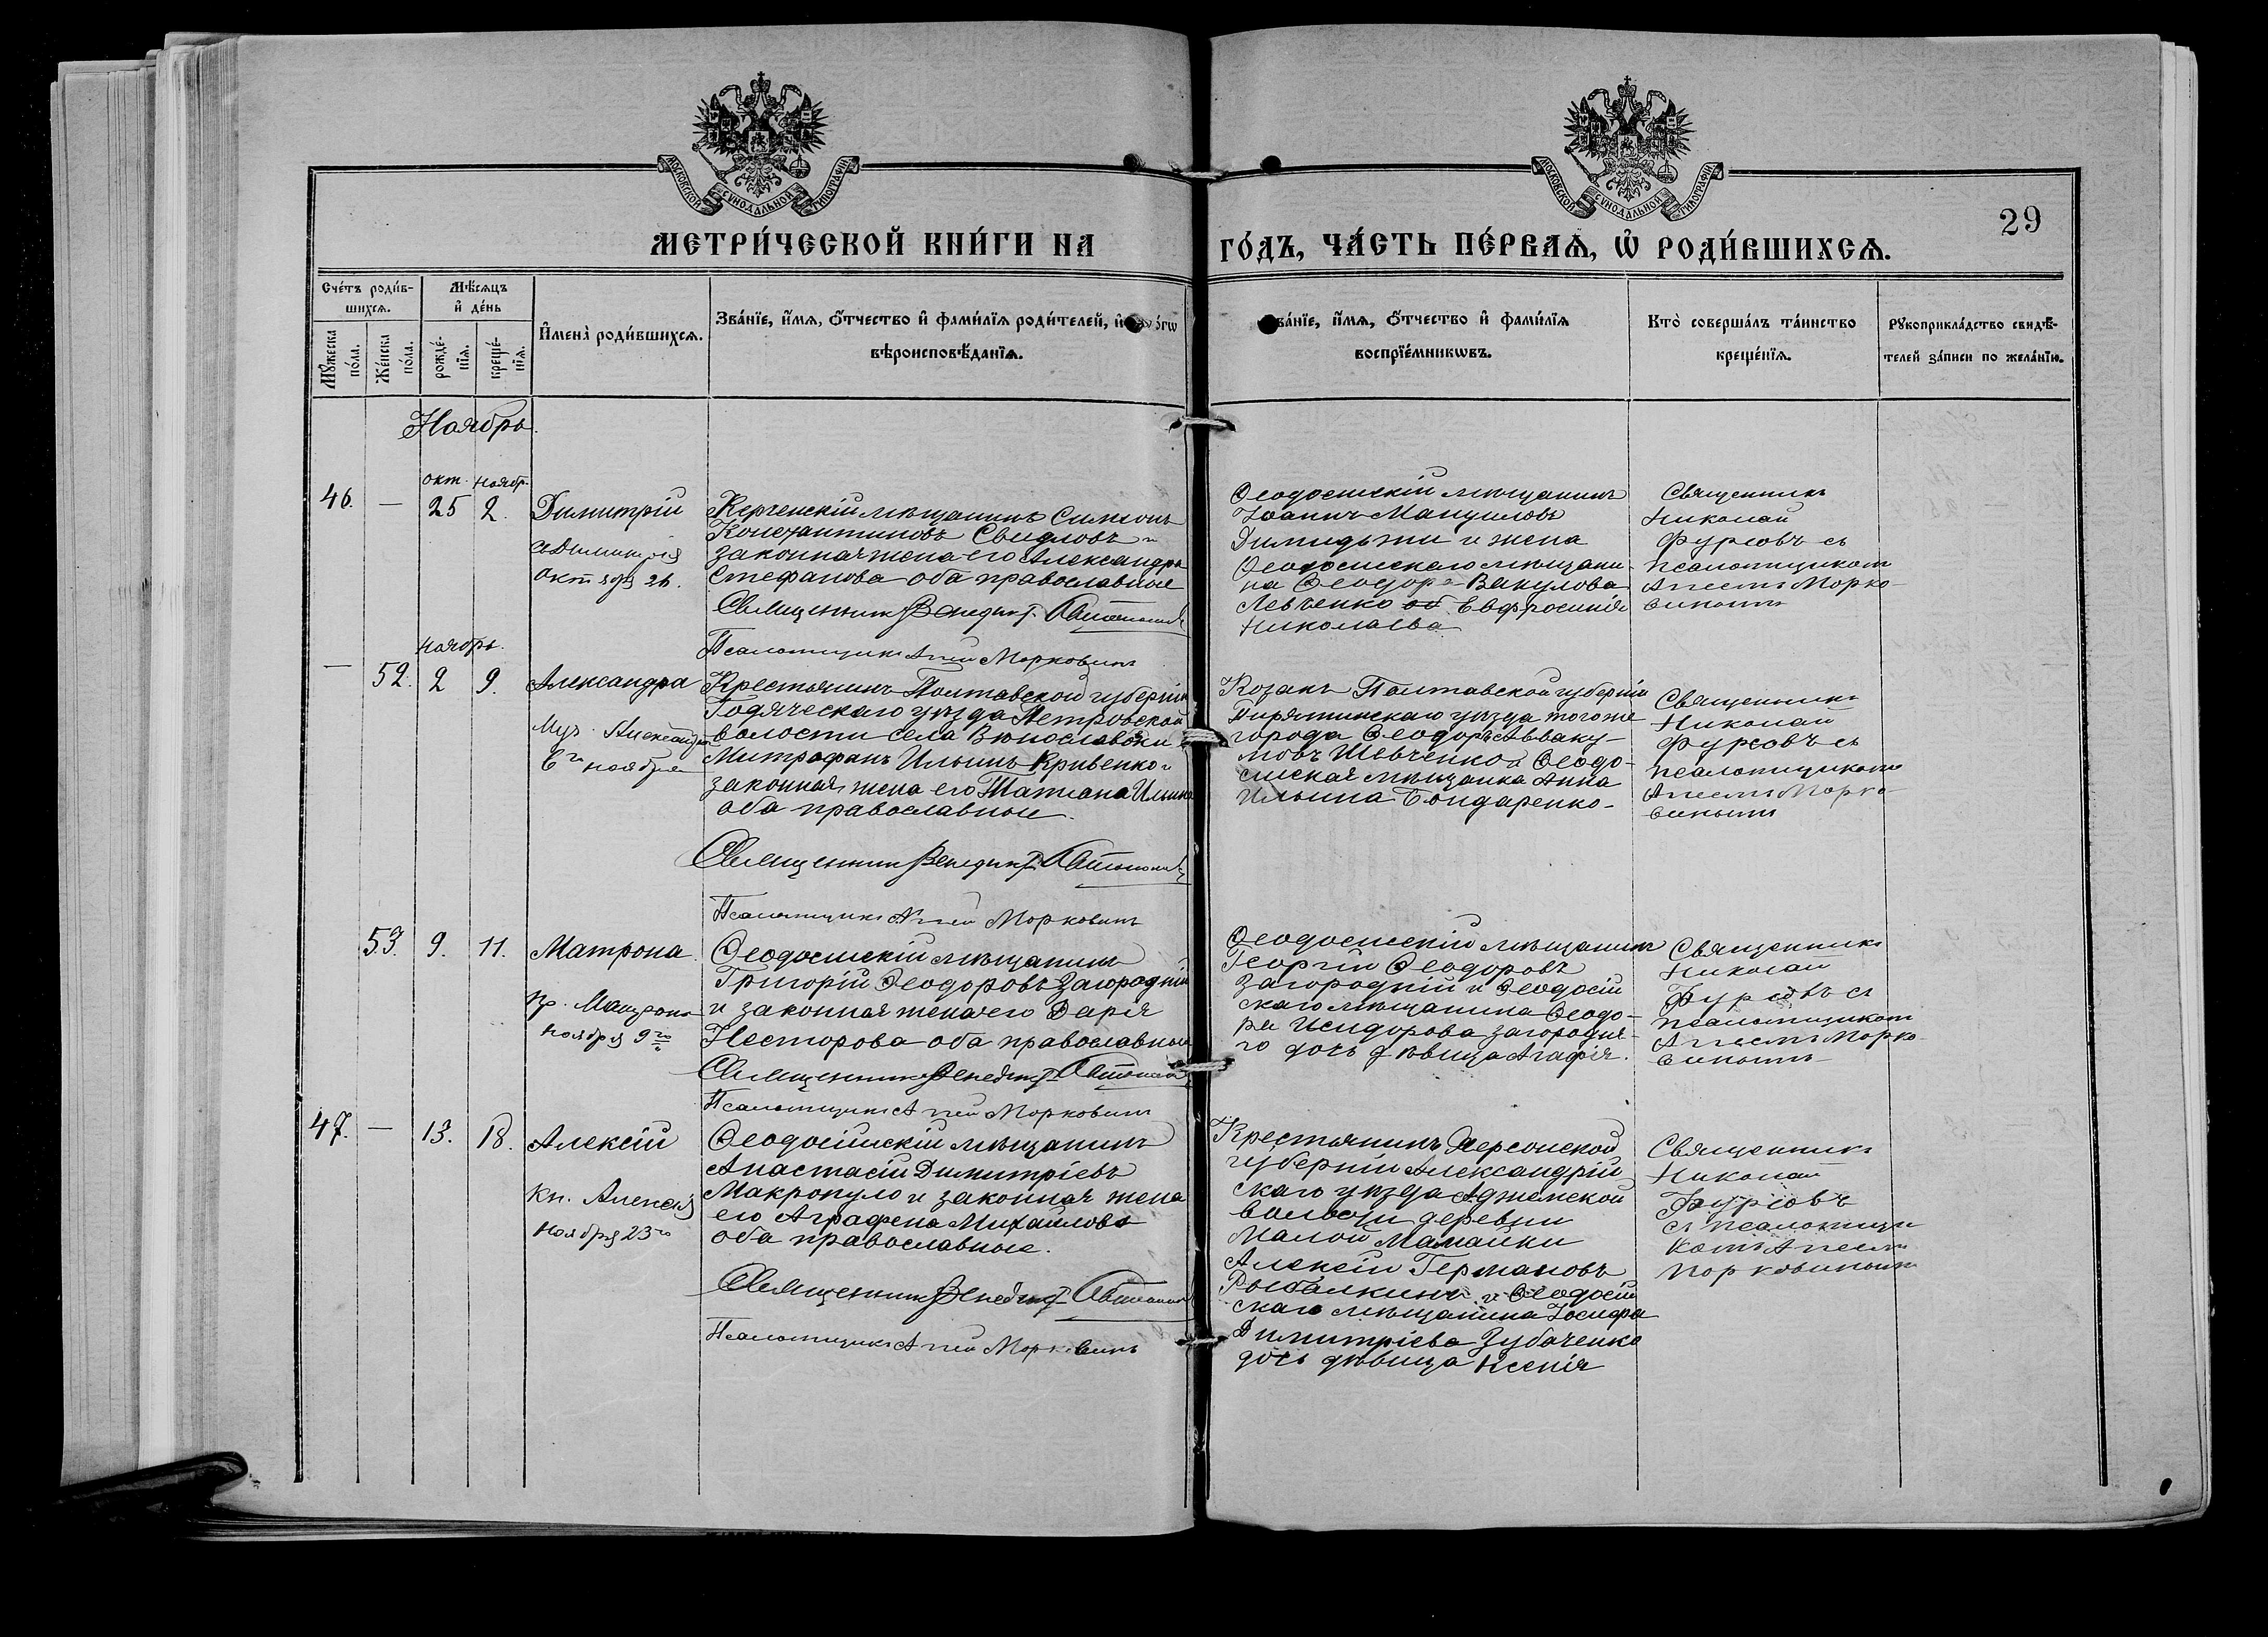 МОСКОВСКОЙ СѴНОДАЛЬНОЙ ТИПОГРАФІИ
МОСКОВСКОЙ СѴНОДАЛЬНОЙ ТИПОГРАФІИ
29
МЕТРИ́ЧЕСКОЙ КНИ́ГИ НА
ГО́ДЪ, ЧА́СТЬ ПЕ́РВАѦ, Ѿ РОДИ́ВШИХСѦ.
Сче́тъ роди́в-
шихсѧ.
Мѣ́сѧцъ
и҆ де́нь
Мꙋ́жеска
по́ла.
Же́нска
по́ла.
рожде́-
нїѧ.
креще́-
нїѧ.
И҆мена̀ роди́вшихсѧ.
Зва́нїе, и҆́мѧ, ѻ҆́тчество и҆ фами́лїѧ роди́телей, и҆
вѣроисповѣ́данїѧ.
и҆́мѧ, ѻ҆́тчество и҆ фами́лїѧ
воспрїе́мникѡвъ.
Кто̀ соверша́лъ та́инство
креще́нїѧ.
Рꙋкоприкла́дство свидѣ́-
телей за́писи по жела́нїю.
Ноябрь.
окт. ноябр.
46. — 25 2. Димитрій
Октября 26.
Керченскій мѣщанинъ Симеонъ
Константиновъ и
законная жена его Александра
Стефанова оба православные
Священникъ Венедиктъ
Псаломщикъ Аггей Морковинъ
Ѳеодосійскій мѣщанинъ
Іоаннъ
и жена
Ѳеодосійскаго мѣщани-
на Ѳеодора Вакулова
Левченко Евфросинія
Николаева
Священникъ
Николай
Фурсовъ съ
псаломщикомъ
Аггеемъ Морко-
винымъ
ноябрь.
— 52. 2 9. Александра
Муч. Александры
6го ноября
Крестьянинъ Полтавской губерніи
Гадяческаго уѣзда Петровской
волости села
Митрофанъ Ильинъ Кривенко и
законная жена его Татіана Ильина
оба православные.
Священникъ Венедиктъ
Псаломщикъ Аггей Морковинъ
Козакъ Полтавской губерніи
Пирятинскаго уѣзда того же
города Ѳеодоръ Аввaку-
мовъ Шевченко и Ѳеодо-
сійская мѣщанка Анна
Ильина Бондаренко.
Священникъ
Николай
Фурсовъ съ
псаломщикомъ
Аггеемъ Морко-
винымъ
53. 9. 11. Матрона
пр. Матроны
ноября 9го
Ѳеодосійскій мѣщанинъ
Григорій Ѳеодоровъ Загородній
и законная жена его Дарія
Несторова оба православные
Священникъ Венедиктъ
Псаломщикъ Аггей Морковинъ
Ѳеодосійскій мѣщанинъ
Георгій Ѳеодоровъ
Загородній и Ѳеодосій-
скаго мѣщанина Ѳеодо-
ра Исидорова Загородня-
го дочь дѣвица Агафія.
Священникъ
Николай
Фурсовъ съ
псаломщикомъ
Аггеемъ Морко-
винымъ
47. — 13. 18. Алексій
Кн. Алексія
ноября 23го
Ѳеодосійскій мѣщанинъ
Анастасій Димитріевъ
Макропуло и законная жена
его Аграфена Михайлова
оба православные.
Священникъ Венедиктъ
Псаломщикъ Аггей Морковинъ
Крестьянинъ Херсонской
губерніи Александрій-
скаго уѣзда Аджамской
волости деревни
Малой Мамайки
Алексій Германовъ
Рыбалкинъ и Ѳеодосій-
скаго мѣщанина Іосифа
Димитріева Зубаченко
дочь дѣвица Ксенія
Священникъ
Николай
Фурсовъ
съ псаломщи-
комъ Аггеемъ
Морковинымъ